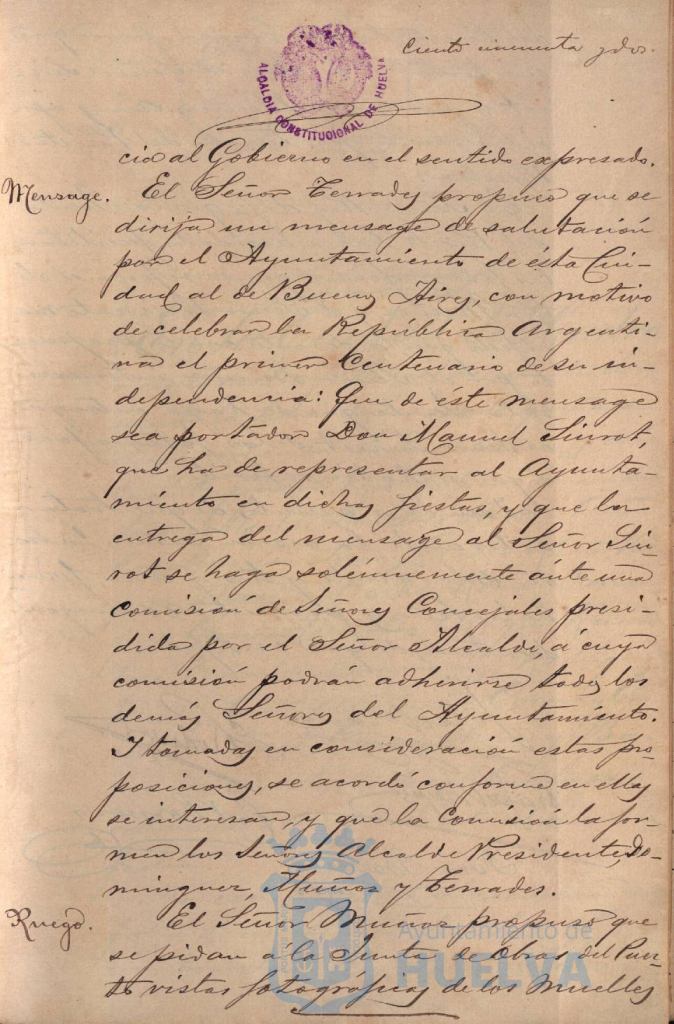 Ciento cincuenta y dos.
ALCALDIA CONSTITUCIONAL DE HUELVA
cio al Gobierno en el sentido expresado.
Mensage.
El Señor Terrades propuso que se
dirija un mensage de salutación
por el Ayuntamiento de ésta Ciu-
dad al de Buenos Aires, con motivo
de celebrar la República Argenti-
na el primer Centenario de su in-
dependencia: Que de éste mensage
sea portador Don Manuel Siurot,
que ha de representar al Ayunta-
miento en dichas fiestas, y que la
entrega del mensage al Señor Siu-
rot se haga solémnemente ánte una
comisión de Señores Concejales presi-
dida por el Señor Alcalde, á cuya
comisión podrán adherirse todos los
demás Señores del Ayuntamiento.
Y tomadas en consideración estas pro-
posiciones, se acordó conforme en ellas
se interesan, y que la Comisión la for-
men los Señores Alcalde Presidente, Do-
minguez, Muñoz y Terrades.
Ruego.
El Señor Muñoz propuso que
se pidan a la Junta de Obras del Puer-
to vistas fotográficas de los muelles
Ayuntamiento de
HUELVA